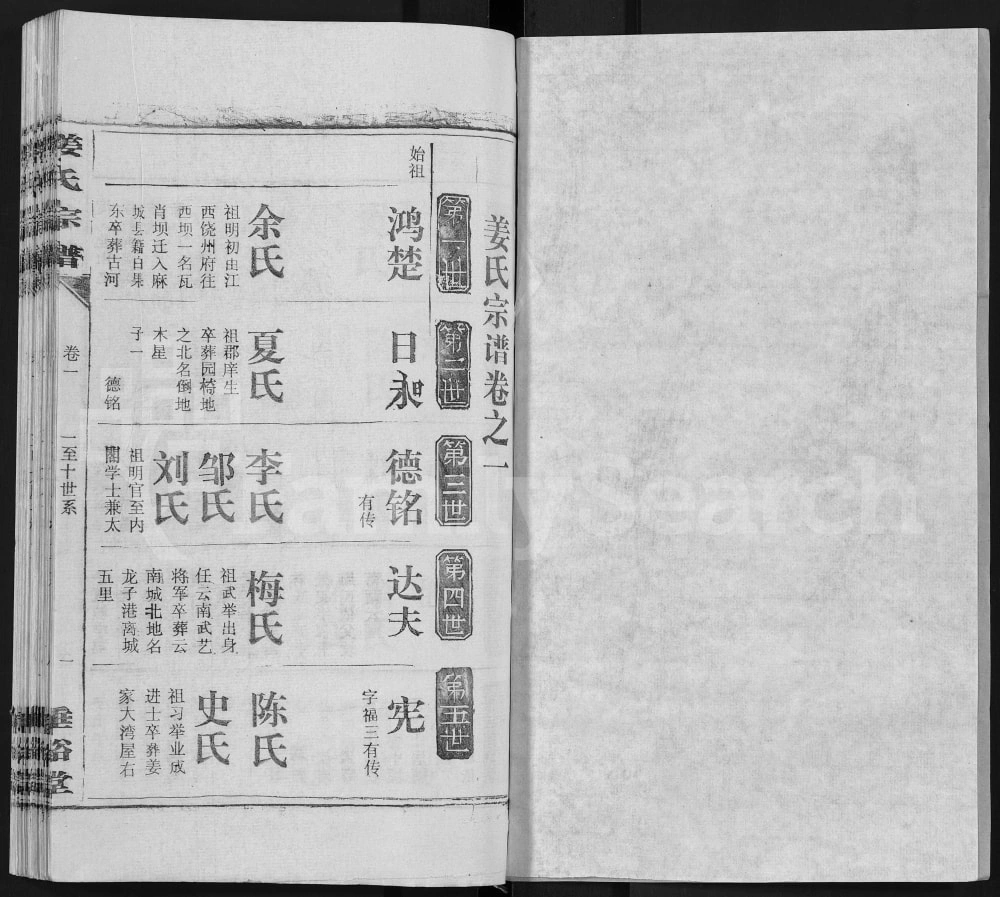 姜氏宗谱卷之一
第一世
始祖
鸿楚
余氏
祖明初由江
西饶州府往
西坝一名瓦
肖坝迁入麻
城县籍白果
东卒葬古河
第二世
日昶
夏氏
祖郡庠生
卒葬园椅地
之北名倒地
木星
子一
德铭
第三世
德铭
有传
李氏
邹氏
刘氏
祖明官至内
阁学士兼太
第四世
达夫
梅氏
祖武举出身
任云南武艺
将军卒葬云
南城北地名
龙子港离城
五里
第五世
宪
字福三有传
陈氏
史氏
祖习举业成
进士卒葬姜
家大湾屋右
姜氏宗谱
卷一
一至十世系
一
垂裕堂
FamilySearch